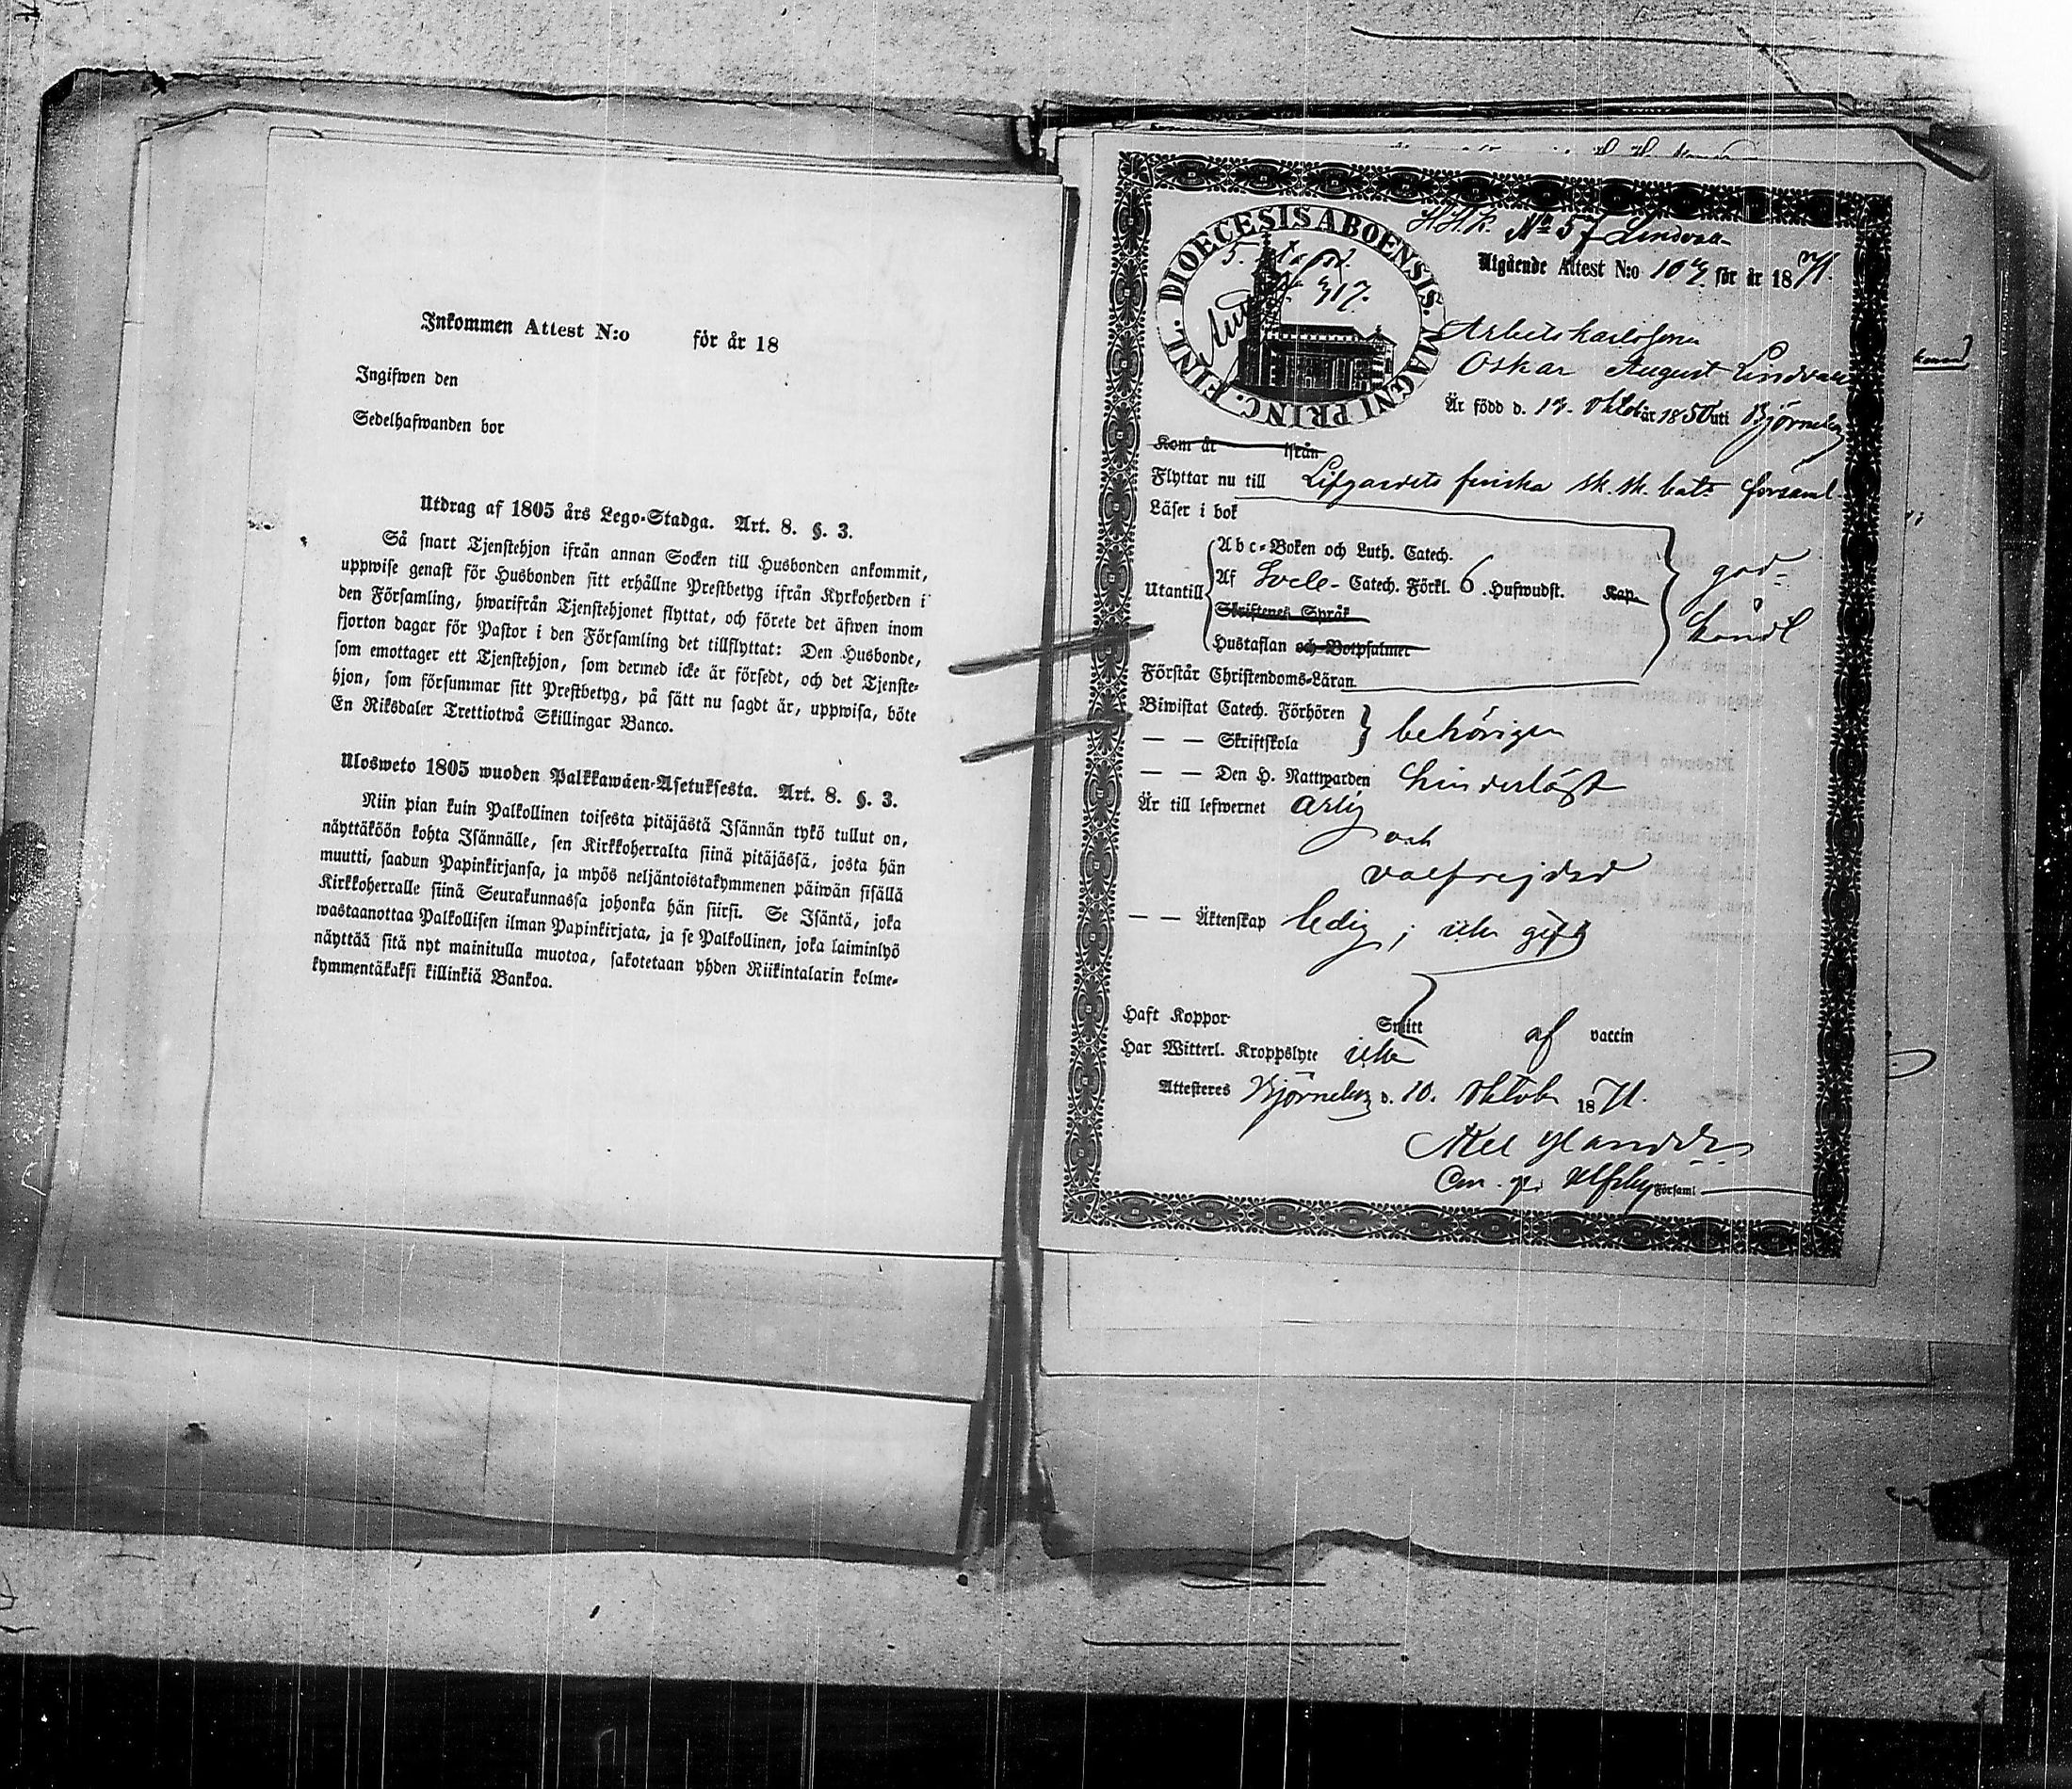 Inkommen Attest N:o för år 18
Ingifwen den
Sedelhafwanden bor
Utdrag af 1805 års Lego-Stadga. Art. 8. §. 3.
Så snart Tjenstehjon ifrån annan Socken till Husbonden ankommit,
uppwise genast för Husbonden sitt erhållne Prestbetyg ifrån Kyrkoherden i
den Församling, hwarifrån Tjenstehjonet flyttat, och förete det äfwen inom
fjorton dagar för Pastor i den Församling det tillflyttat: Den Husbonde,
som emottager ett Tjenstehjon, som dermed icke är försedt, och det Tjenste-
hjon, som försummar sitt Prestbetyg, på sätt nu sagdt är, uppwisa, böte
En Riksdaler Trettiotwå Skillingar Banco.
Ulosweto 1805 wuoden Palkkawäen-Asetuksesta. Art. 8. §. 3.
Niin pian kuin Palkollinen toisesta pitäjästä Isännän tykö tullut on,
näyttäköön kohta Isännälle, sen Kirkkoherralta siinä pitäjässä, josta hän
muutti, saadun Papinkirjansa, ja myös neljäntoistakymmenen päiwän sisällä
Kirkkoherralle siinä Seurakunnassa johonka hän siirsi. Se Isäntä, joka
wastaanottaa Palkollisen ilman Papinkirjata, ja se Palkollinen, joka laiminlyö
näyttää sitä nyt mainitulla muotoa, sakotetaan yhden Riikintalarin kolme-
kymmentäkaksi killinkiä Bankoa.
DIOECESIS ABOENSIS. MAGNI PRINC. FINL.
No 57 Lindvall
Utgående Attest N:o för år 1871.
Arbetskarlssonen
Oskar August Lindvall
Är född d. Oktob år 1850 uti Björneborg
Kom år ifrån
Flyttar nu till Lifgardets finska sk. sk. bat:s församl.
Läser i bok
Abc-Boken och Luth. Catech.
Utantill Af Svebe- Catech. Förkl. 6. Hufwudst. Kap.
Skriftenes Språk
Hustaflan och Botpsalmer
god-
känd
Förstår Christendoms-Läran
Biwistat Catech. Förhören
— — Skriftskola behörigen
— — Den H. Nattwarden hinderlöst
Är till lefwernet ärlig
och
välfrejdad
— — Äktenskap ledig; icke gift
Haft Koppor Smitt af vaccin
Har Witterl. Kroppslyte icke
Attesteres Björneborg d. 10. Oktob. 1871.
Ulfsby Församl